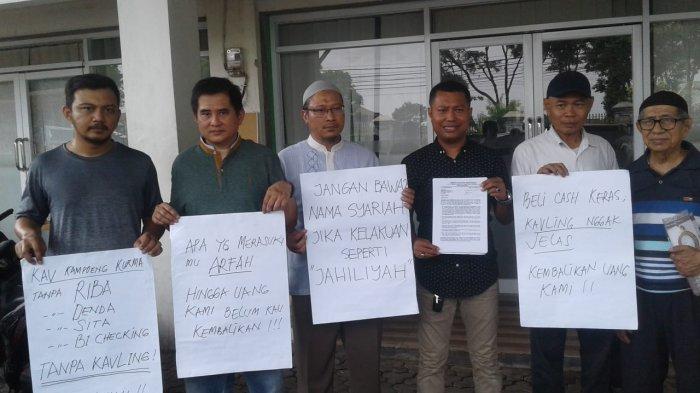 KAV KAMPOENG KURMA
TANPA RIBA
-"- DENDA
-"- SITA
-"- BI CHECKING
TANPA KAVLING!
APA YG MERASUKI
MU ARFAH
HINGGA UANG
KAMI BELUM KAU
KEMBALIKAN !!!
JANGAN BAWA2
NAMA SYARIAH
JIKA KELAKUAN
SEPERTI
"JAHILIYAH"
BELI CASH KERAS,
KAVLING NGGAK
JELAS
KEMBALIKAN UANG
KAMI !!